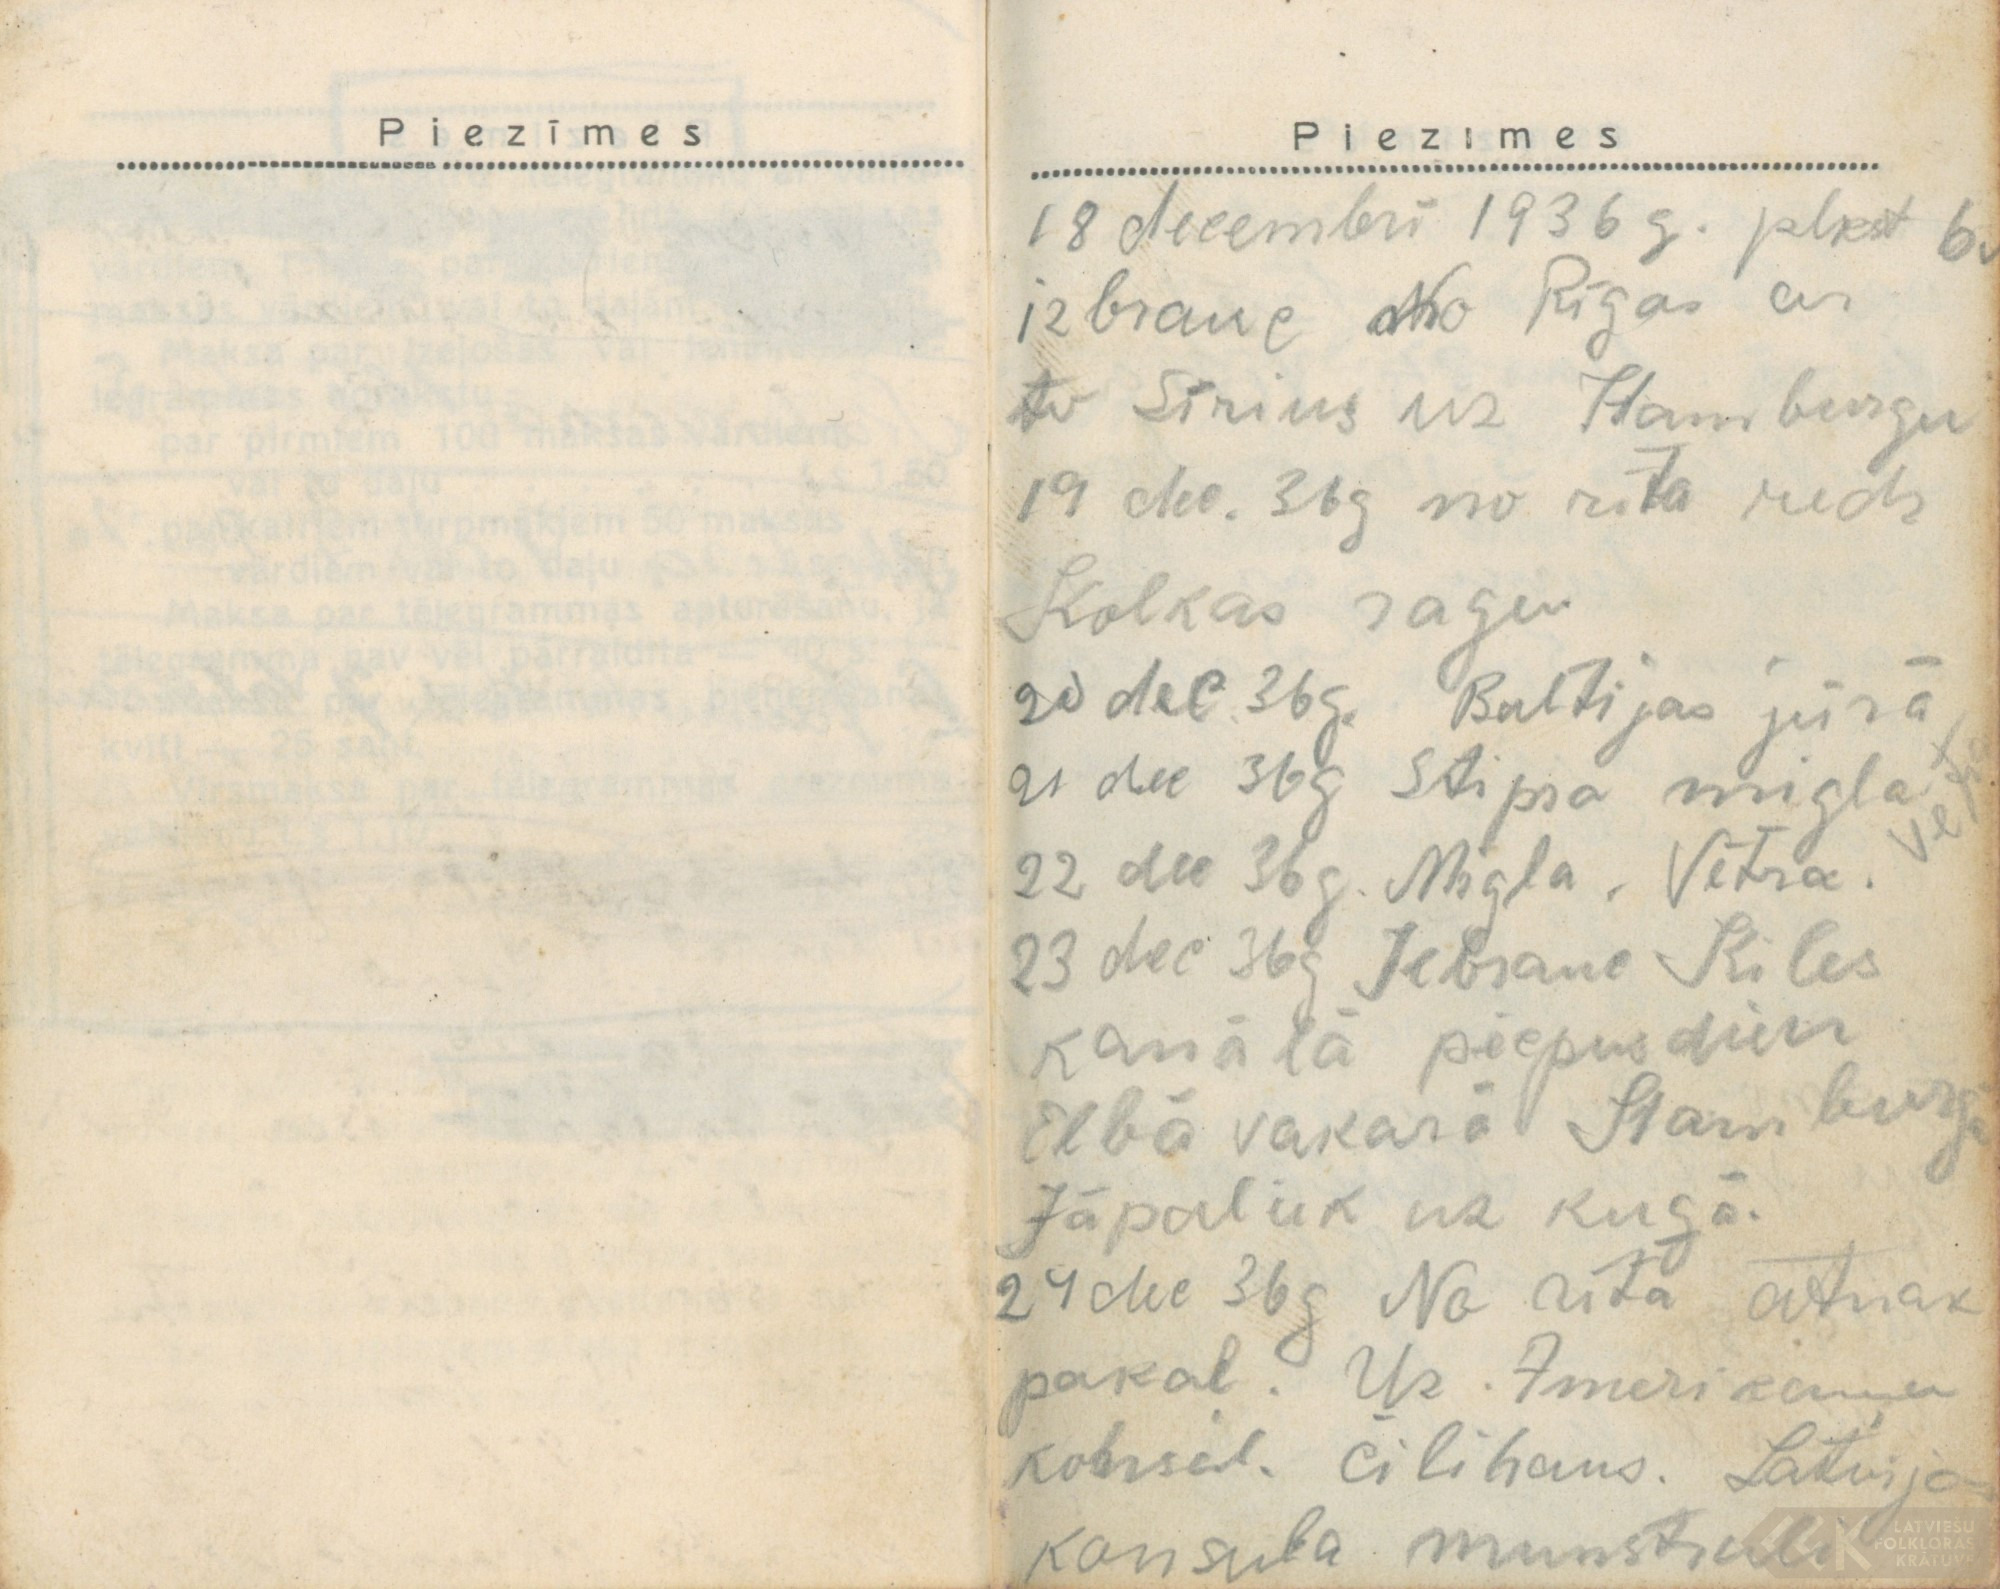 Piezīmes
Piezīmes
18 decembrī 1936 g. plkst 6v
izbrauc no Rīgas ar
tv Sīrius uz Hamburgu
19 dec. 36g no rīta redz
Kolkas ragu
20 dec 36g. Baltijas jūrā
21 dec 36g Stipra migla
vētra
22 dec 36g. Migla. Vētra.
23 dec 36g Iebrauc Ķīles
kanālā pēcpusdien
Elbā vakarā Hamburgā
Jāpaliek uz kuģa.
24 dec 36g No rīta atnāk
pakaļ. Uz Amerikāņu
konsul. Čilihaus. Latvijas
konsula
LATVIEŠU
FOLKLORAS
KRĀTUVE